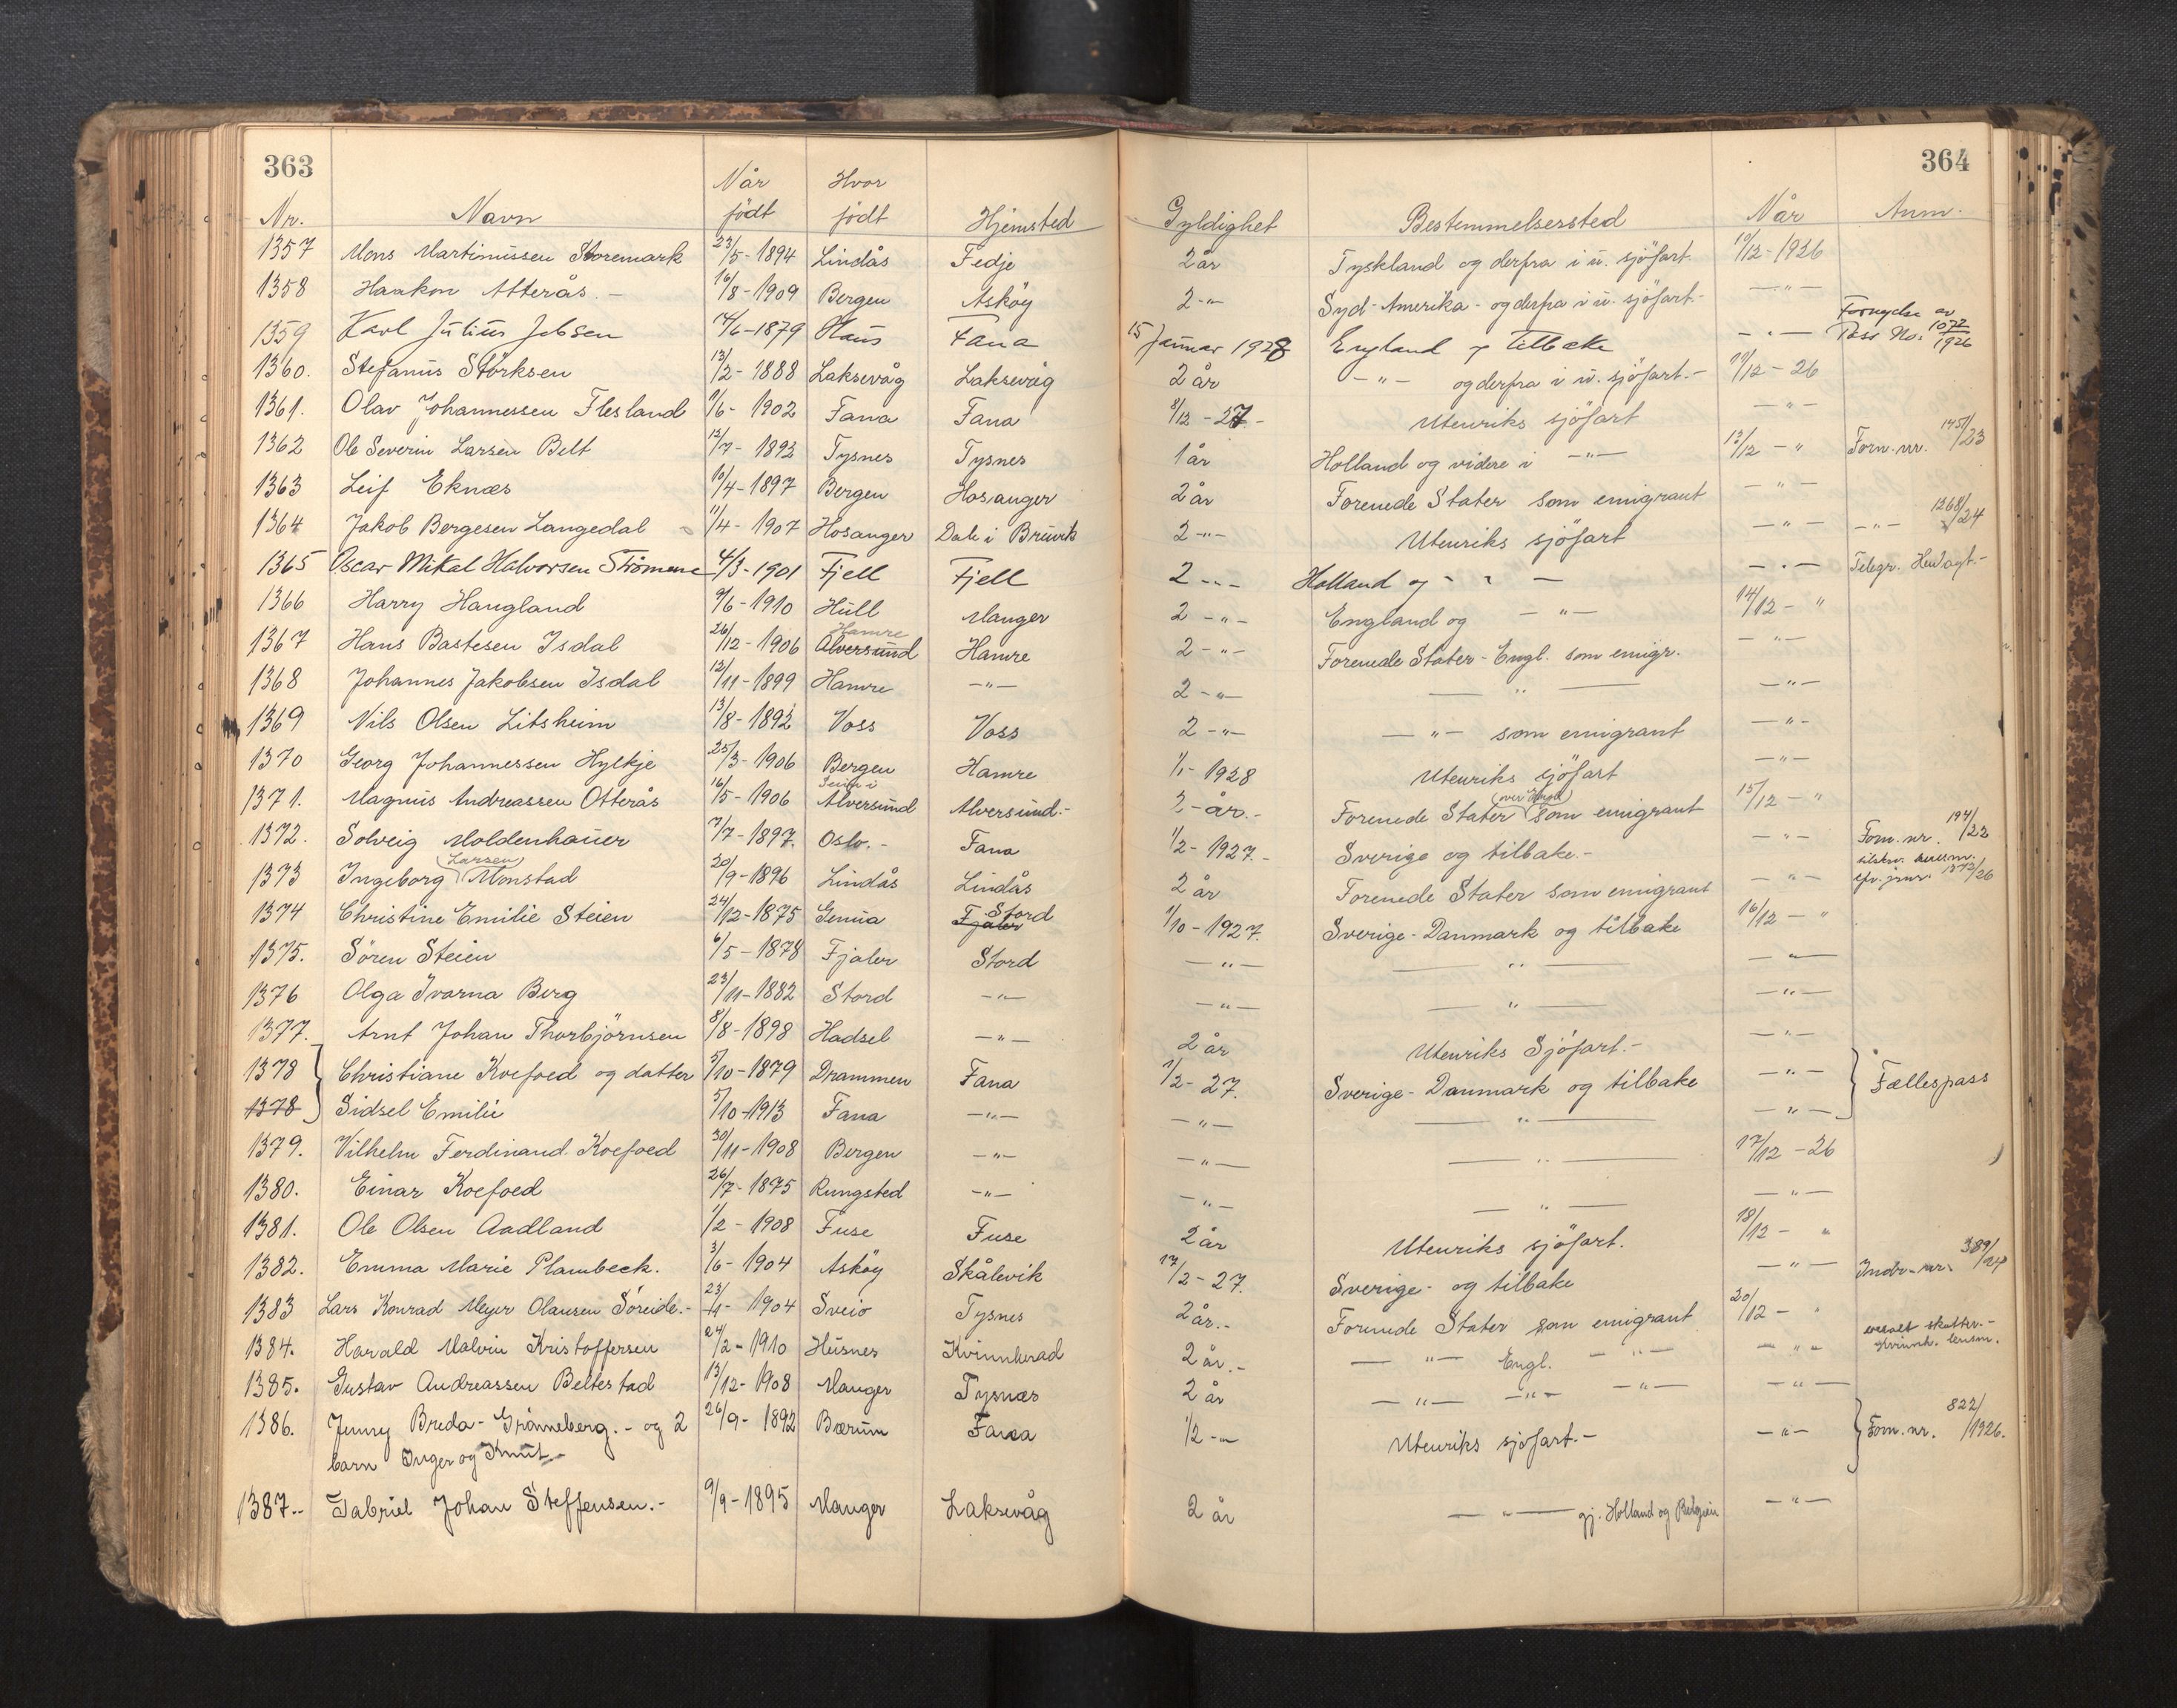 363
364
Nr. Navn Når födt Hvor födt Hjemsted Gyldighet Bestemmelsersted Når Anm.
1357 Mons Martinussen Storemark 23/5-1894 Lindås Fedje 2 år Tyskland og derfra i u. sjöfart 10/12-1926
1358 Haakon Atterås.- 16/8-1909 Bergen Asköy 2-"- Syd-Amerika-og derfra i u. sjöfart.- -"-
1359 Karl Julius Jebsen 14/6-1879 Haus Fana 15 Januar 1928 England og tilbake -"- Fornyelse av Pass No. 1072/1926
1360. Stefanus Storksen 13/2-1888 Laksevåg Laksevåg 2 år -"- og derfra i u. sjöfart.- 11/12-26
1361. Olav Johannessen Flesland 1/6-1902 Fana Fana 8/12-27- Utenriks sjöfart -"-
1362 Ole Severin Larsen Belt 12/7-1892 Tysnes Tysnes 1 år Holland og videre i -"- 13/12-" Forn. nr. 1451/23
1363 Leif Eknæs 10/4-1897 Bergen Hosanger 2 år Forenede Stater som emigrant -"-
1364 Jakob Bergesen Langedal 11/4-1907 Hosanger Dale i Bruvik 2-"- Utenriks sjöfart -"- -"- 1268/24
1365 Oscar Mikal Halvorsen Strömme 4/3-1901 Fjell Fjell 2-"- Holland og -"- -"- Telegr. Hewagt.-
1366 Harry Haugland 9/6-1910 Hull Manger 2-"- England og -"- 14/12-"
1367 Hans Bastesen Isdal 26/12-1906 Alversund Hamre Hamre 2-"- Forenede Stater-Engl. som emigr. -"-
1368 Johannes Jakobsen Isdal 12/11-1899 Hamre -"- 2-"- -"- -"-
1369 Nils Olsen Litsheim 13/8-1892 Voss Voss 2-"- -"- som emigrant -"-
1370 Georg Johannessen Hylkje 25/3-1906 Bergen Hamre 1/1-1928 Utenriks sjöfart -"-
1371. Magnus Andreassen Otterås 16/5-1906 Seim i Alversund Alversund.- 2-år.- Forenede Stater (over Engl) som emigrant 15/12-"
1372. Solveig Moldenhauer 7/7-1897. Oslo.- Fana 1/2-1927.- Sverige og tilbake.- -"- Forn. nr. 194/22
1373 Ingeborg (Larsen) Monstad 20/9-1896 Lindås Lindås 2 år Forenede Stater som emigrant -"- efr. jrnr. 1372/26
1374 Christine Emilie Steien 24/12-1875 Genua Fjaler Stord 1/10-1927. Sverige-Danmark og tilbake 16/12-"
1375. Sören Steien 6/5-1878 Fjaler Stord -"- -"- -"-
1376 Olga Ivarna Berg 23/11-1882 Stord -"- -"- -"- -"-
1377. Arnt Johan Thorbjörnsen 8/8-1898 Hadsel -"- 2 år Utenriks Sjöfart.- -"-
1378 Christiane Koefoed og datter 5/10-1879 Drammen Fana 1/2-27. Sverige-Danmark og tilbake -"- Fællespass
1378 Sidsel Emilie 5/10-1913 Fana -"- -"- -"- -"-
1379. Vilhelm Ferdinand Koefoed 30/11-1908 Bergen -"- -"- -"- 17/12-26
1380. Einar Koefoed 26/7-1875 Rungsted -"- -"- -"- -"-
1381. Ole Olsen Aadland 1/2-1908 Fuse Fuse 2 år Utenriks sjöfart. 18/12-"
1382. Emma Marie Plambeck. 3/6-1904 Asköy Skålevik 17/2-27. Sverige-og tilbake -"- Indr.-nr. 389/24
1383 Lars Konrad Meyer Olausen Söreide.- 23/11-1904 Sveio Tysnes 2 år.- Forenede Stater som emigrant 20/12-"
1384. Harald Malvin Kristoffersen 24/2-1910 Husnes Kvinnherad 2 år.- -"- Engl. -"- -"- skatter.- Kvinnh. lensm.
1385. Gustav Andreassen Beltestad 13/12-1908 Manger Tysnæs 2 år -"- -"- -"- -"-
1386. Jenny Breda-Grönneberg.- og 2 26/9-1892 Bærum Fana 1/2-"- Utenriks sjöfart.- -"- Forn. nr. 822/1926.
barn Inger og Knut.-
1387.- Gabriel Johan Steffensen.- 9/9-1895 Manger Laksevåg 2 år -"- gj. Holland og Belgien -"-